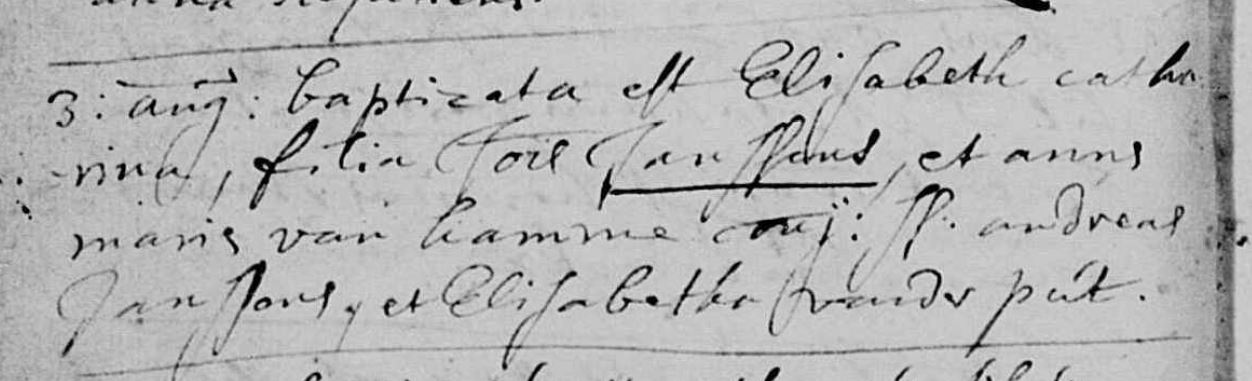 3: aug: baptizata est Elisabeth catha
rina, filia Jois Janssens, et annæ
mariæ van hamme conj: ss. andreas
Janssens, et Elisabetha vander put.